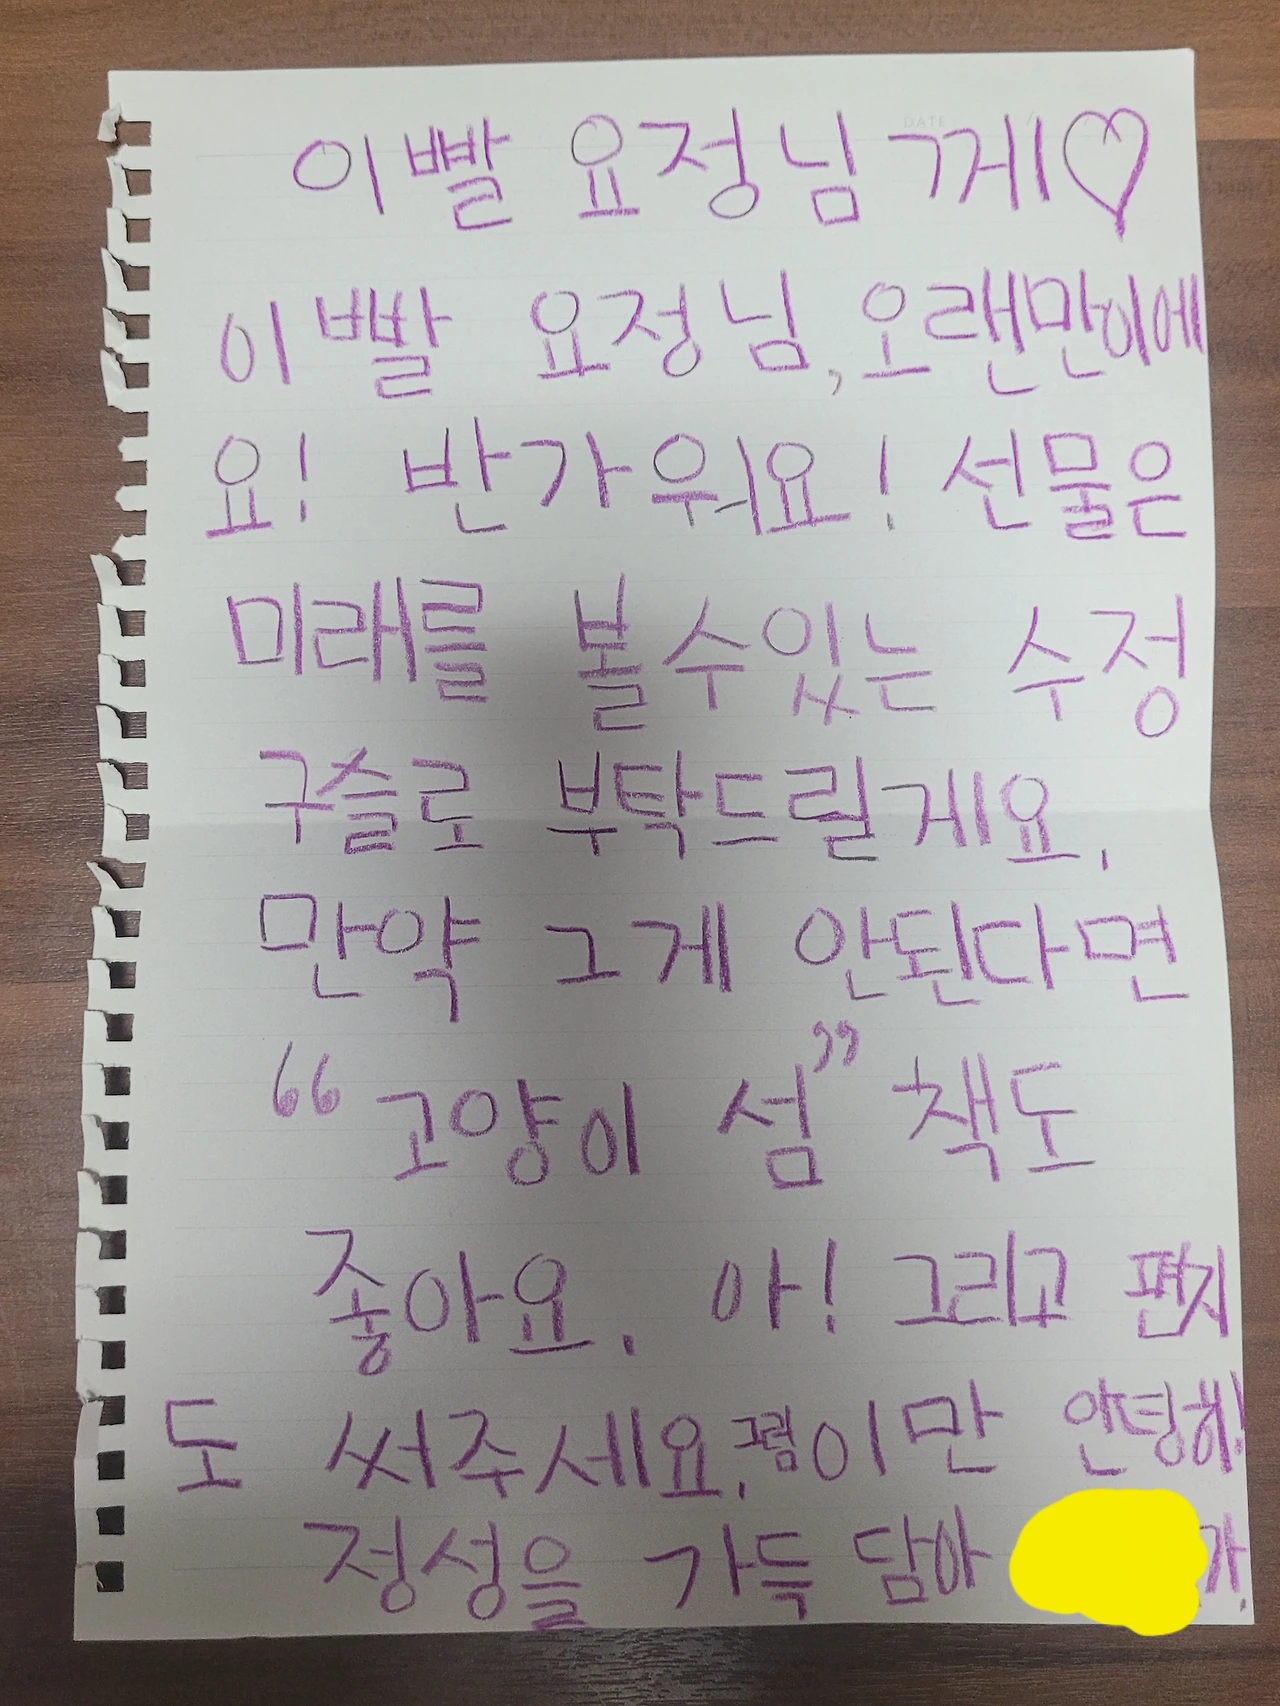 이빨 요정님께♡
이빨 요정님, 오랜만이에
요! 반가워요! 선물은
미래를 볼수있는 수정
구슬로 부탁드릴게요.
만약 그게 안된다면
“고양이 섬” 책도
좋아요. 아! 그리고 편지
도 써주세요. 그럼 이만 안녕히!
정성을 가득 담아 가.